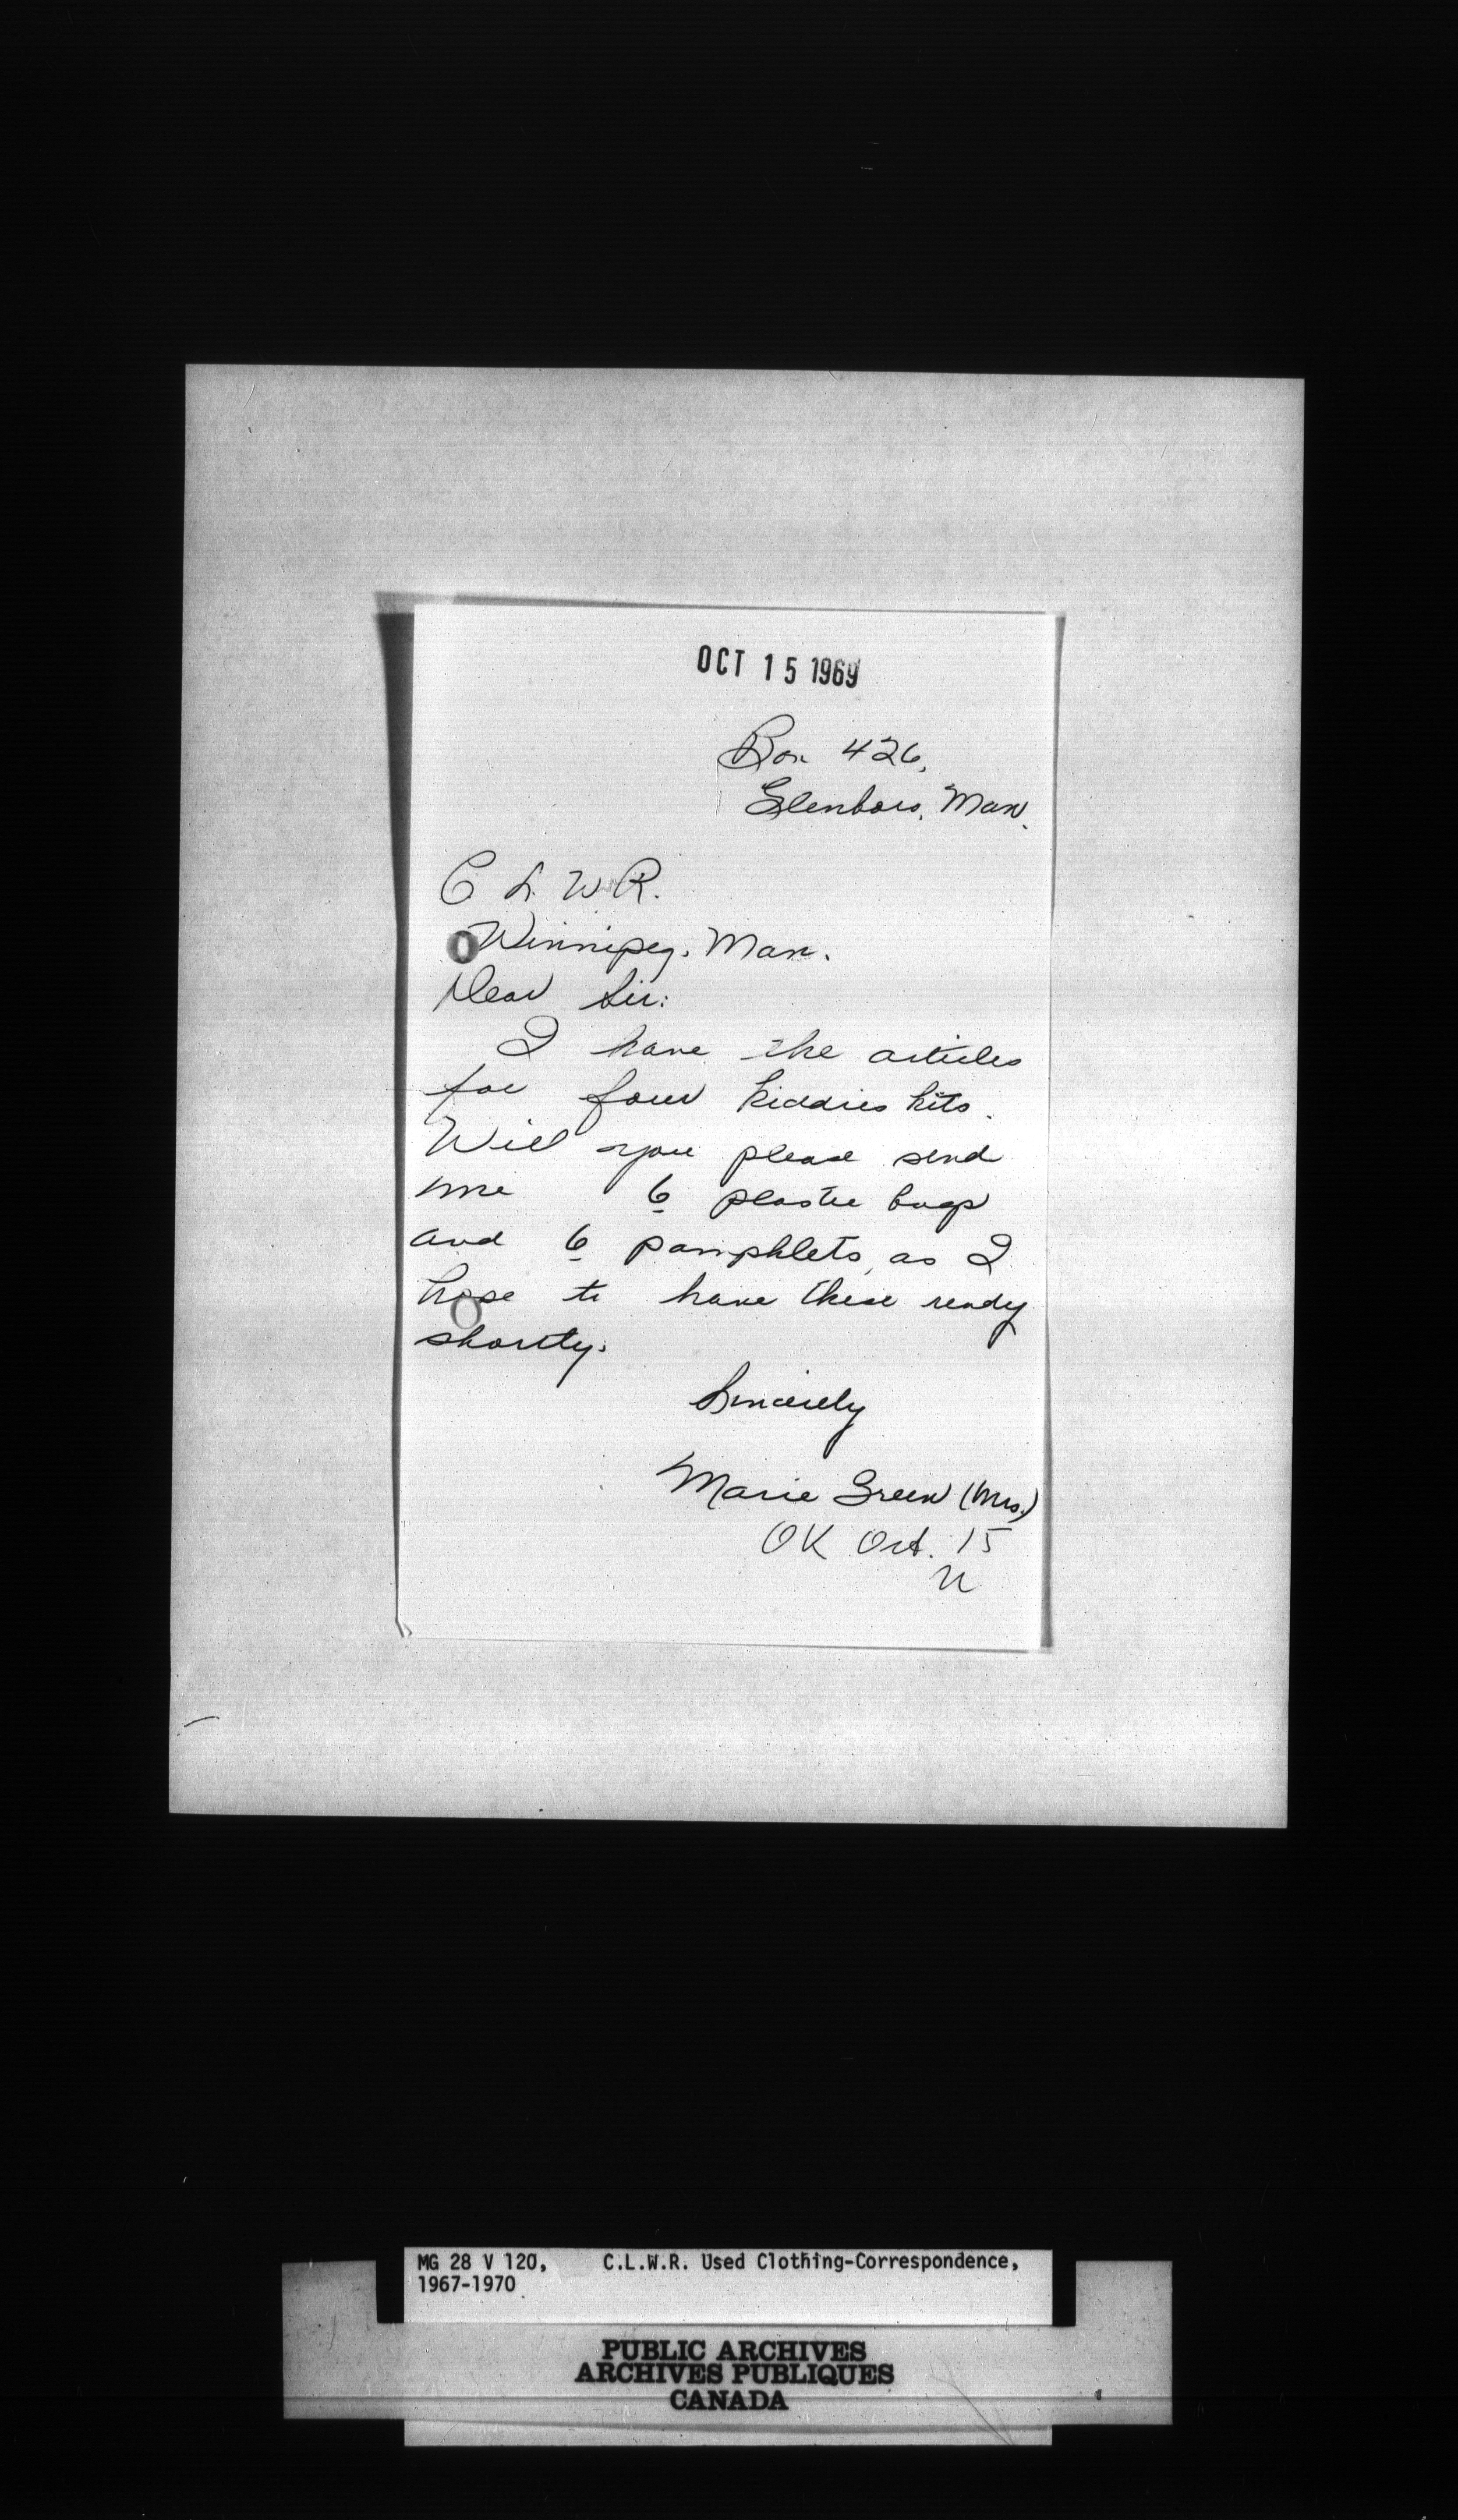 OCT 15 1969
Box 426,
Glenboro, Man.
C L. W R.
Winnipeg, Man.
Dear Sir:
I have the articles
for four kiddies kits.
Will you please send
me 6 plastic bags
and 6 pamphlets, as I
hope to have these ready
shortly.
Sincerely
Marie Green (Mrs.)
OK Oct. 15
MG 28 V 120, C.L.W.R. Used Clothing-Correspondence,
1967-1970
PUBLIC ARCHIVES
ARCHIVES PUBLIQUES
CANADA